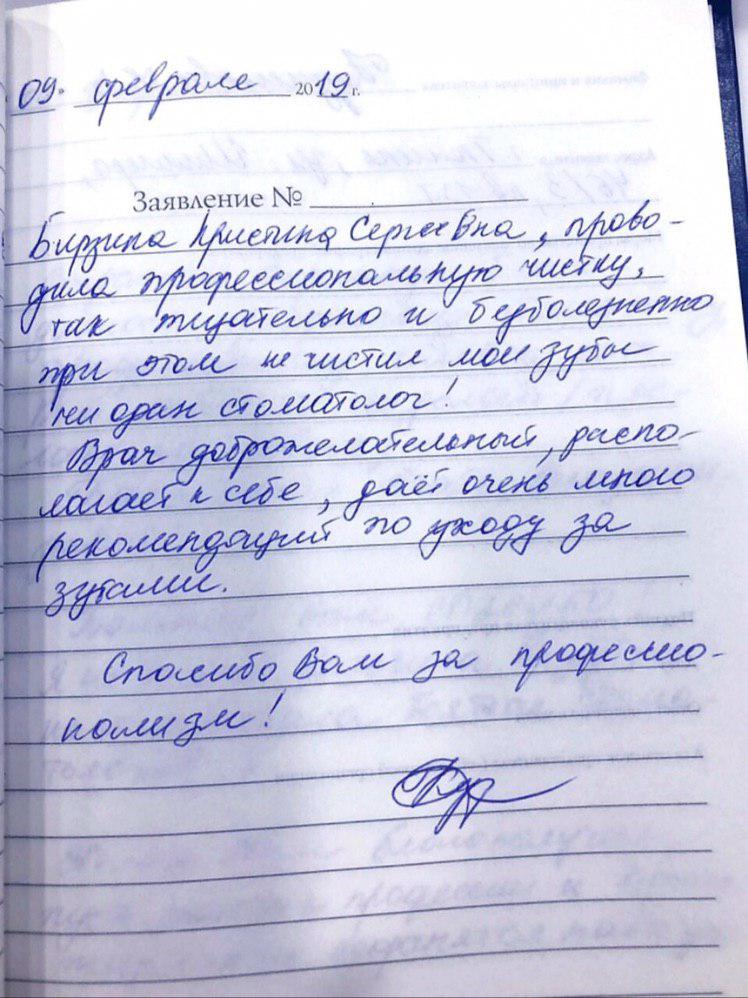 09 февраля 2019 г.
Заявление №
Бирзина Кристина Сергеевна, прово-
дила профессиональную чистку,
так тщательно и безболезненно
при этом не чистил мои зубы
ни один стоматолог!
Врач доброжелательный, распо-
лагает к себе, даёт очень много
рекомендаций по уходу за
зубами.
Спасибо Вам за професьио-
нализм!